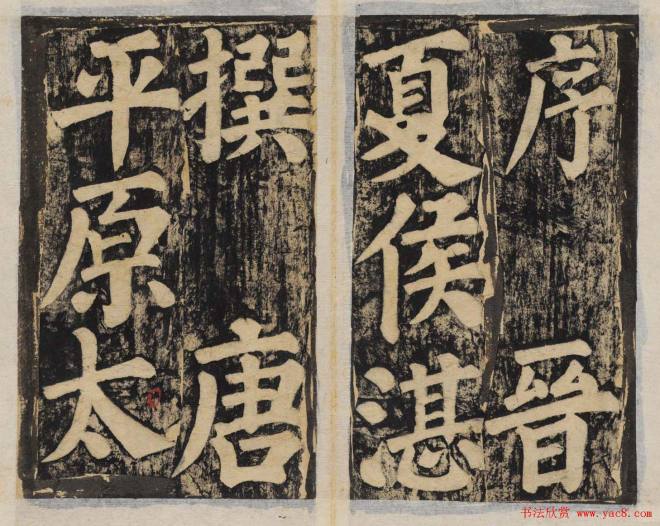 序 晉
夏侯湛
撰 唐
平原太
书法欣赏 www.yac8.com